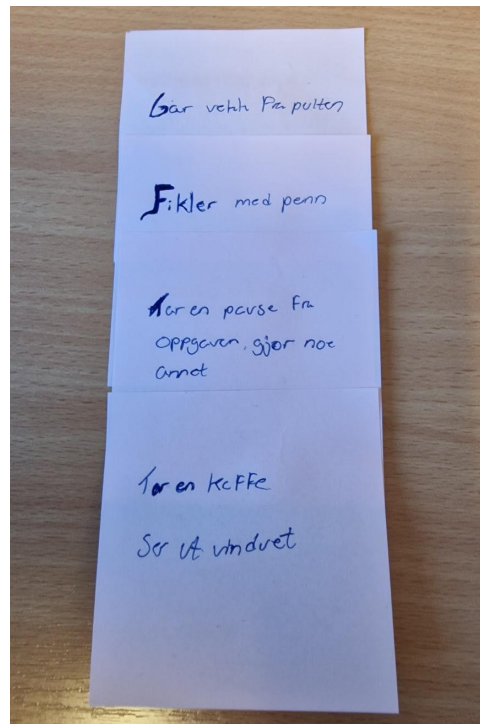 Går vekk fra pulten
Fikler med penn
Tar en pause fra
oppgaven, gjør noe
annet
Tar en kaffe
Ser ut vinduet